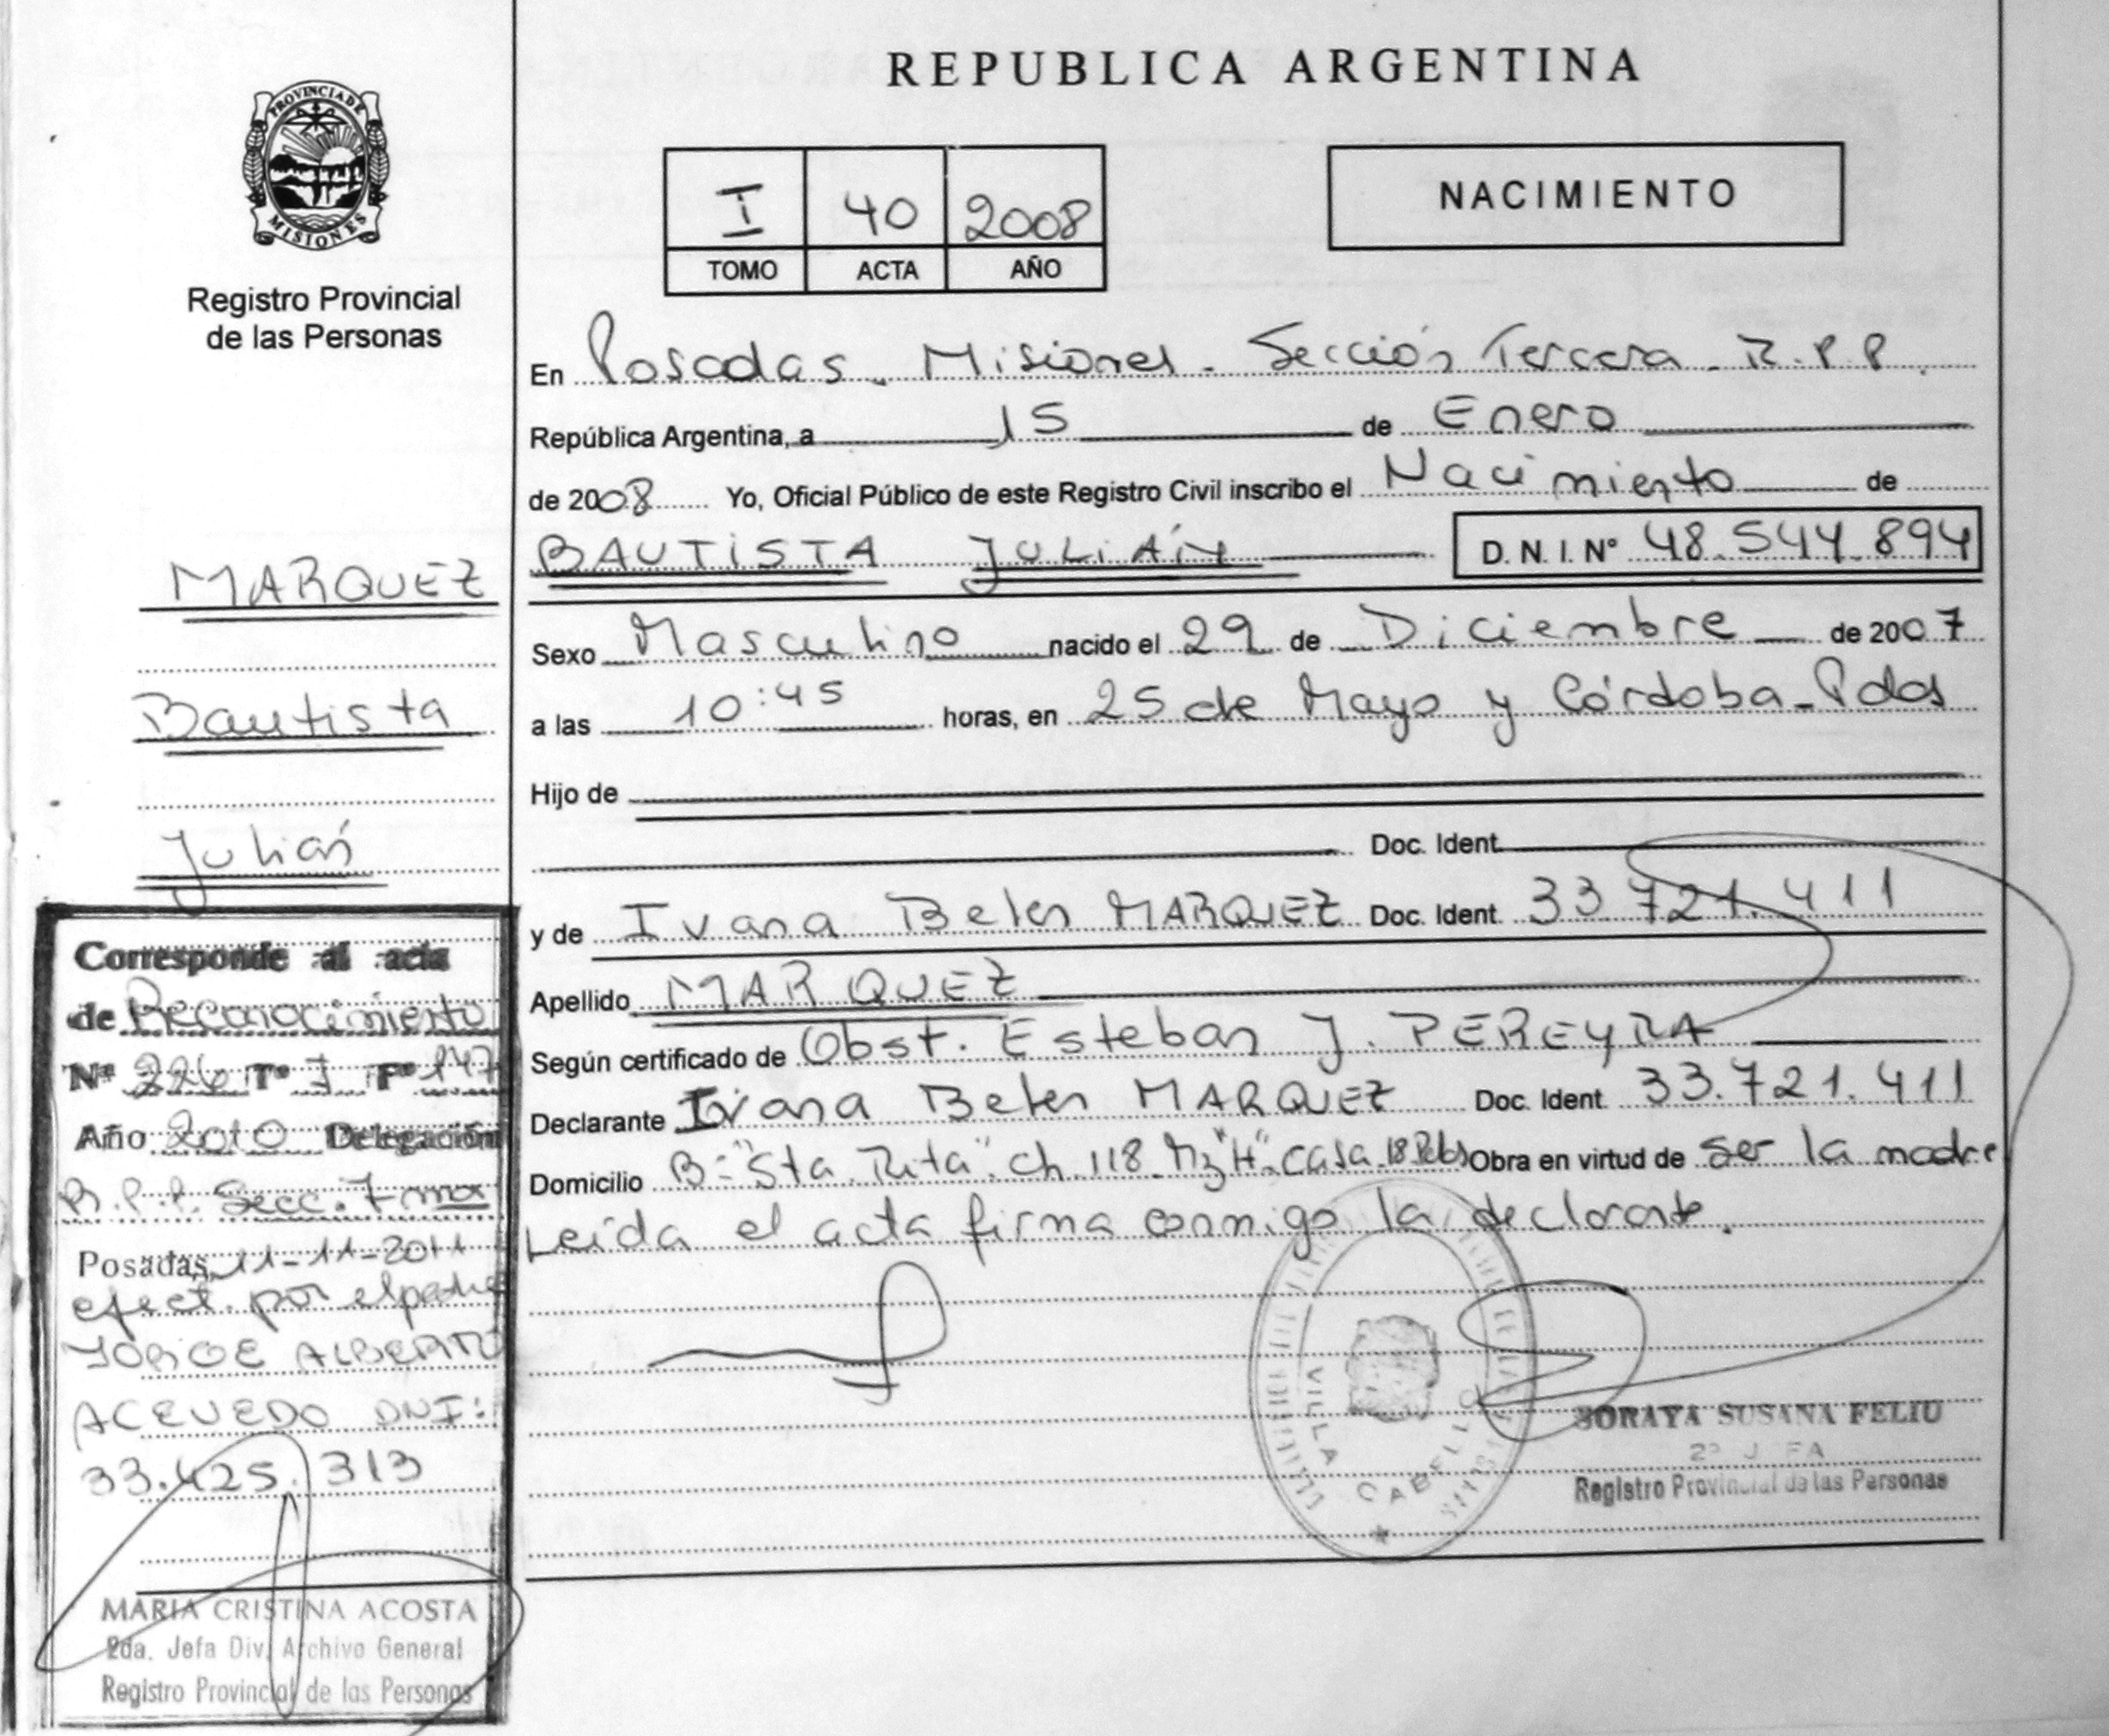 REPUBLICA ARGENTINA
PROVINCIA DE
MISIONES
Registro Provincial
de las Personas
I 40 2008
TOMO ACTA AÑO
NACIMIENTO
En Posadas - Misiones - Sección Tercera - R.P.P.
República Argentina, a 15 de Enero
de 2008 Yo, Oficial Público de este Registro Civil inscribo el Nacimiento de
BAUTISTA JULIÁN D.N.I.N° 48.544.894
Sexo Masculino nacido el 29 de Diciembre de 2007
a las 10:45 horas, en 25 de Mayo y Córdoba - Pdas
Hijo de
Doc. Ident.
y de Ivana Belen MARQUEZ Doc. Ident. 33.721.411
Apellido MARQUEZ
Según certificado de Obst. Esteban J. PEREYRA
Declarante Ivana Belen MARQUEZ Doc. Ident. 33.721.411
Domicilio B: "Sta. Rita" ch. 118 Mz "H" casa 18 Obra en virtud de ser la madre
Leída el acta firma conmigo la declarante.
VILLA CABELLO
SORAYA SUSANA FELIU
2° JEFA
Registro Provincial de las Personas
MARQUEZ
Bautista
Julián
Corresponde al acta
de Reconocimiento
N° 226 T° I F° 147
Año 2010 Delegación
R.P.P. Secc. 7ma
Posadas, 11-11-2011
efect. por el padre
JORGE ALBERTO
ACEVEDO DNI:
33.425.313
MARIA CRISTINA ACOSTA
2da. Jefa Div. Archivo General
Registro Provincial de las Personas